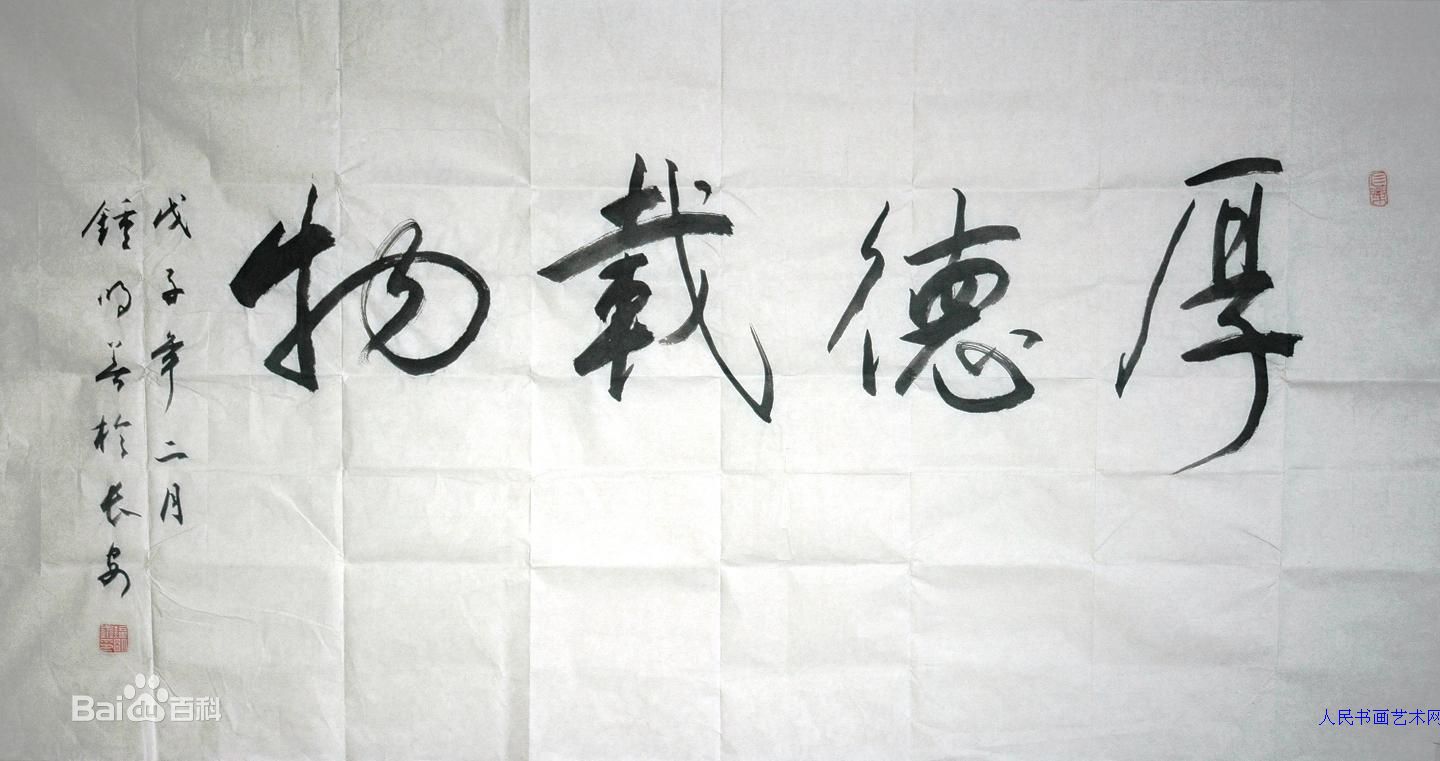 厚德载物
戊子年二月
鍾明善於长安
Bai百科
人民书画艺术网